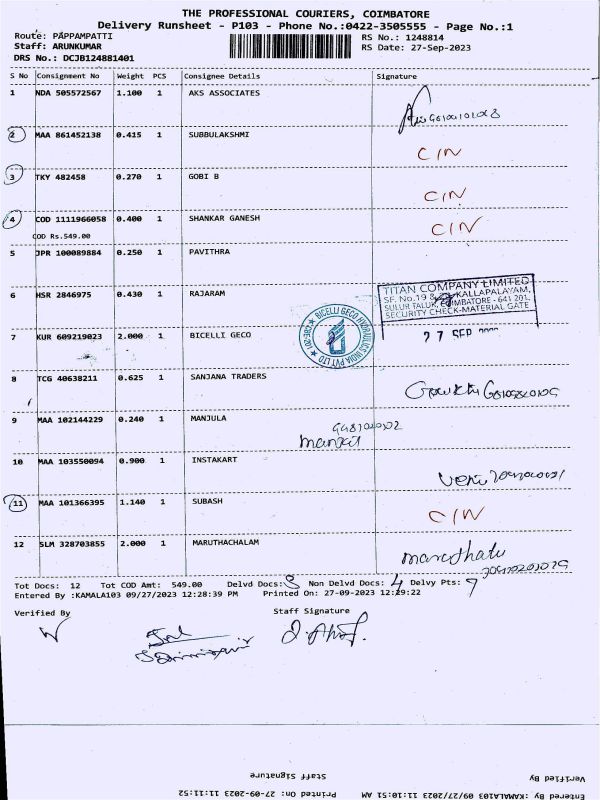 THE PROFESSIONAL COURIERS, COIMBATORE
Delivery Runsheet - P103 - Phone No.:0422-3505555 - Page No.:1
Route: PAPPAMPATTI RS No.: 1248814
Staff: ARUNKUMAR RS Date: 27-Sep-2023
DRS No.: DCJB124881401
S No Consignment No Weight PCS Consignee Details Signature
1 NDA 505572567 1.100 1 AKS ASSOCIATES
2 MAA 861452138 0.415 1 SUBBULAKSHMI
C/N
3 TKY 482458 0.270 1 GOBI B
C/N
4 COD 1111966058 0.400 1 SHANKAR GANESH C/N
COD Rs.549.00
5 JPR 100089884 0.250 1 PAVITHRA
TITAN COMPANY LIMITED
SF. No.19 & KALLAPALAYAM,
SULUR TALUK, COIMBATORE - 641 201.
SECURITY CHECK-MATERIAL GATE
6 HSR 2846975 0.430 1 RAJARAM
BICELLI GECO HYDRAULICS INDIA PVT LTD
27 SEP
7 KUR 609219023 2.000 1 BICELLI GECO
8 TCG 40638211 0.625 1 SANJANA TRADERS
9 MAA 102144229 0.240 1 MANJULA
10 MAA 103550094 0.900 1 INSTAKART
11 MAA 101366395 1.140 1 SUBASH
C/N
12 SLM 328703855 2.000 1 MARUTHACHALAM
Tot Docs: 12 Tot COD Amt: 549.00 Delvd Docs: 8 Non Delvd Docs: 4 Delvy Pts: 9
Entered By :KAMALA103 09/27/2023 12:28:39 PM Printed On: 27-09-2023 12:29:22
Verified By Staff Signature
Verified By Staff Signature
Entered By :KAMALA103 09/27/2023 11:10:51 AM Printed On: 27-09-2023 11:11:52